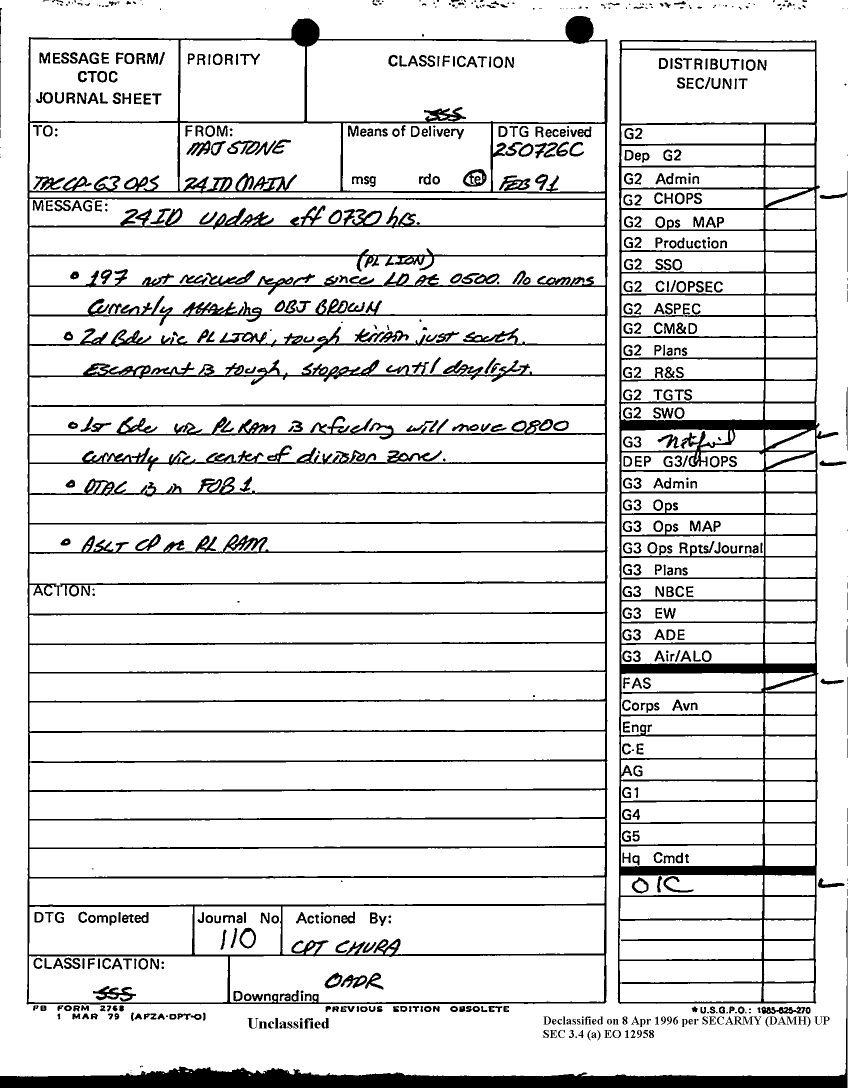 MESSAGE FORM/
CTOC
JOURNAL SHEET
PRIORITY
CLASSIFICATION
SSS
TO:
TACCP-G3 OPS
FROM:
MAJ STONE
24 ID MAIN
Means of Delivery
msg rdo tel
DTG Received
250726C
FEB 91
MESSAGE:
24 ID update eff 0730 hrs.
(PL LION)
• 197 not recieved report since LD at 0500. No comms
Currently attacking OBJ BROWN
• 2d Bde vic PL LION, tough terrain just south.
Escarpment is tough, stopped until daylight.
• 1st Bde vic PL RAM is refueling will move 0800
currently vic center of division zone.
• DTAC is in FOB 1.
• ASLT CP at PL RAM.
ACTION:
DTG Completed
Journal No.
110
Actioned By:
CPT CHURA
CLASSIFICATION:
SSS
OADR
Downgrading
FB FORM 2768
1 MAR 79 (AFZA-DPT-O)
PREVIOUS EDITION OBSOLETE
Unclassified
DISTRIBUTION
SEC/UNIT
G2
Dep G2
G2 Admin
G2 CHOPS
G2 Ops MAP
G2 Production
G2 SSO
G2 CI/OPSEC
G2 ASPEC
G2 CM&D
G2 Plans
G2 R&S
G2 TGTS
G2 SWO
G3 Notfied
DEP G3/CHOPS
G3 Admin
G3 Ops
G3 Ops MAP
G3 Ops Rpts/Journal
G3 Plans
G3 NBCE
G3 EW
G3 ADE
G3 Air/ALO
FAS
Corps Avn
Engr
C-E
AG
G1
G4
G5
Hq Cmdt
OIC
* U.S.G.P.O.: 1985-625-270
Declassified on 8 Apr 1996 per SECARMY (DAMH) UP
SEC 3.4 (a) EO 12958